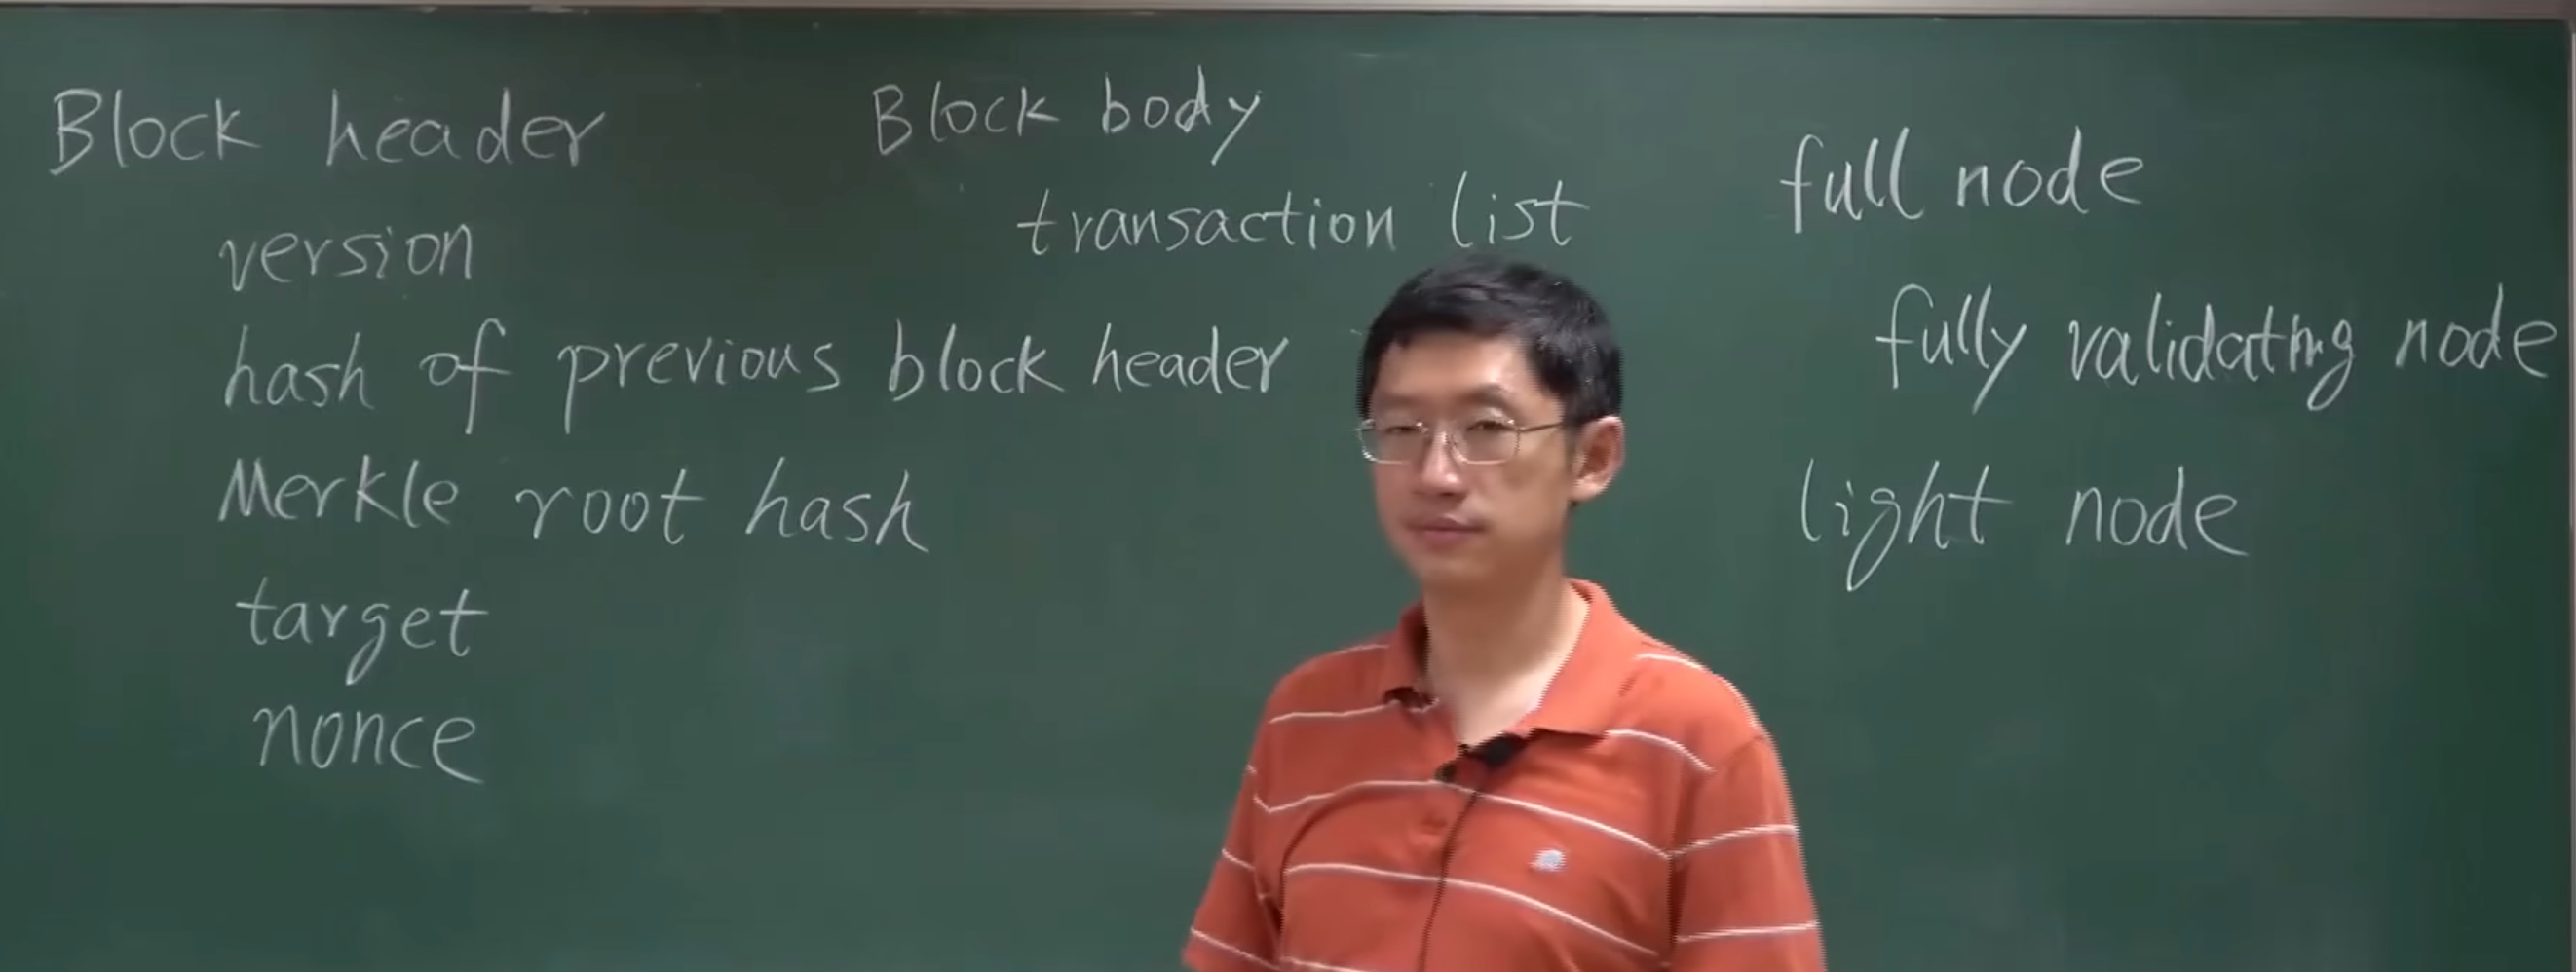 Block header
version
hash of previous block header
Merkle root hash
target
nonce
Block body
transaction list
full node
fully validating node
light node